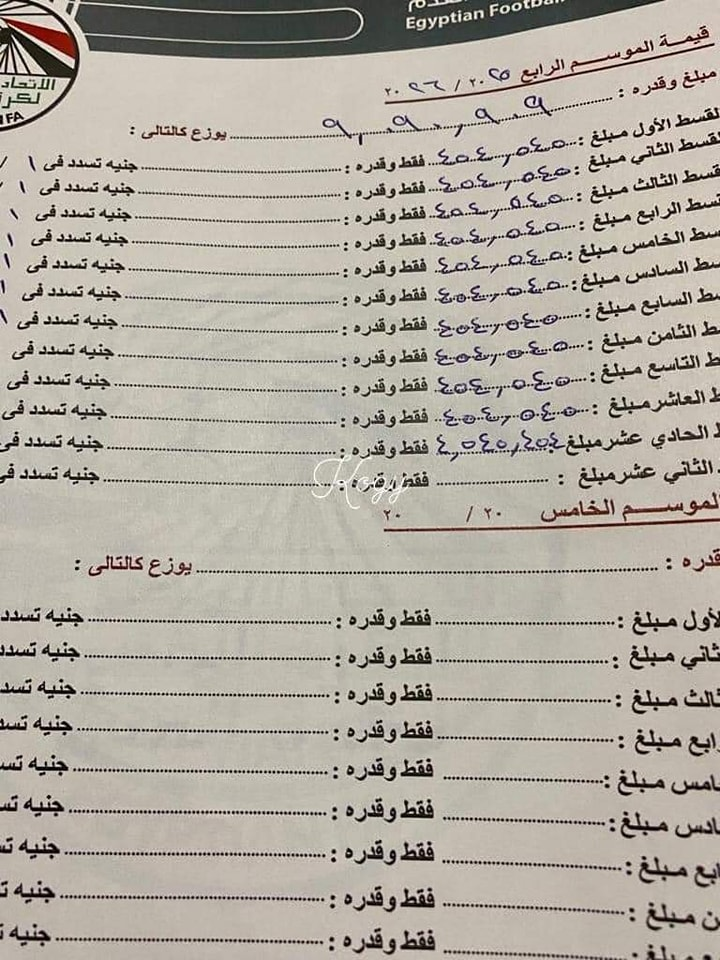 Egyptian Football
الاتحاد
لكرة
FA
قيمة الموسم الرابع ٢٠٢٥ / ٢٠٢٦
مبلغ وقدره : ٩,٠٩٠,٩٠٩ يوزع كالتالى :
لقسط الأول مبلغ : ٤٥٤,٥٤٥ فقط وقدره : جنيه تسدد فى ١ /
لقسط الثاني مبلغ : ٤٥٤,٥٤٥ فقط وقدره : جنيه تسدد فى ١ /
قسط الثالث مبلغ : ٤٥٤,٥٤٥ فقط وقدره : جنيه تسدد فى ١
قسط الرابع مبلغ : ٤٥٤,٥٤٥ فقط وقدره : جنيه تسدد فى ١
سط الخامس مبلغ : ٤٥٤,٥٤٥ فقط وقدره : جنيه تسدد فى ١
سط السادس مبلغ : ٤٥٤,٥٤٥ فقط وقدره : جنيه تسدد فى ١
سط السابع مبلغ : ٤٥٤,٥٤٥ فقط وقدره : جنيه تسدد فى ١
ط الثامن مبلغ : ٤٥٤,٥٤٥ فقط وقدره : جنيه تسدد فى
ط التاسع مبلغ : ٤٥٤,٥٤٥ فقط وقدره : جنيه تسدد فى
ط العاشر مبلغ : ٤٥٤,٥٤٥ فقط وقدره : جنيه تسدد فى
ط الحادي عشر مبلغ ٤,٥٤٥,٤٥٤ فقط وقدره : جنيه تسدد فى
الثاني عشر مبلغ : فقط وقدره : جنيه تسدد فى
Kogy
الموسم الخامس ٢٠ / ٢٠
قدره : يوزع كالتالى :
الأول مبلغ : فقط وقدره : جنيه تسدد
ثاني مبلغ : فقط وقدره : جنيه تسدد
الث مبلغ : فقط وقدره : جنيه تسدد
رابع مبلغ : فقط وقدره : جنيه تسد
امس مبلغ : فقط وقدره : جنيه تسد
ادس مبلغ : فقط وقدره : جنيه تس
ابع مبلغ : فقط وقدره : جنيه تس
ن مبلغ : فقط وقدره : جنيه ت
ع مبلغ : فقط وقدره : جنيه ت